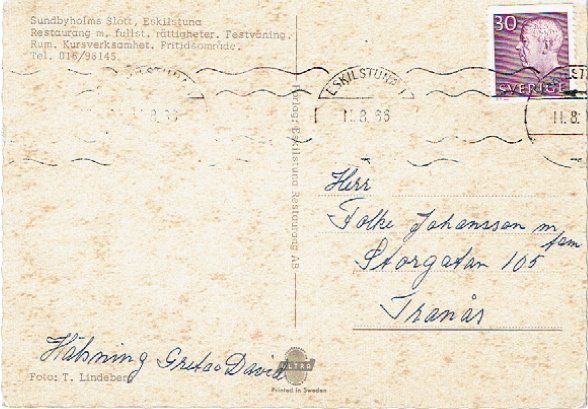 Sundbyholms Slott, Eskilstuna
Restaurang m. fullst. rättigheter. Festvåning.
Rum. Kursverksamhet. Fritidsområde.
Tel. 016/96145.
30
SVERIGE
ESKILSTUNA 1
11.8.66
8.66
11.8.
Förlag: Eskilstuna Restaurang AB
Herr
Folke Johansson m
fam
Storgatan 105
Tranås
Hälsning Greta o David
ULTRA
Foto: T. Lindeberg
Printed in Sweden